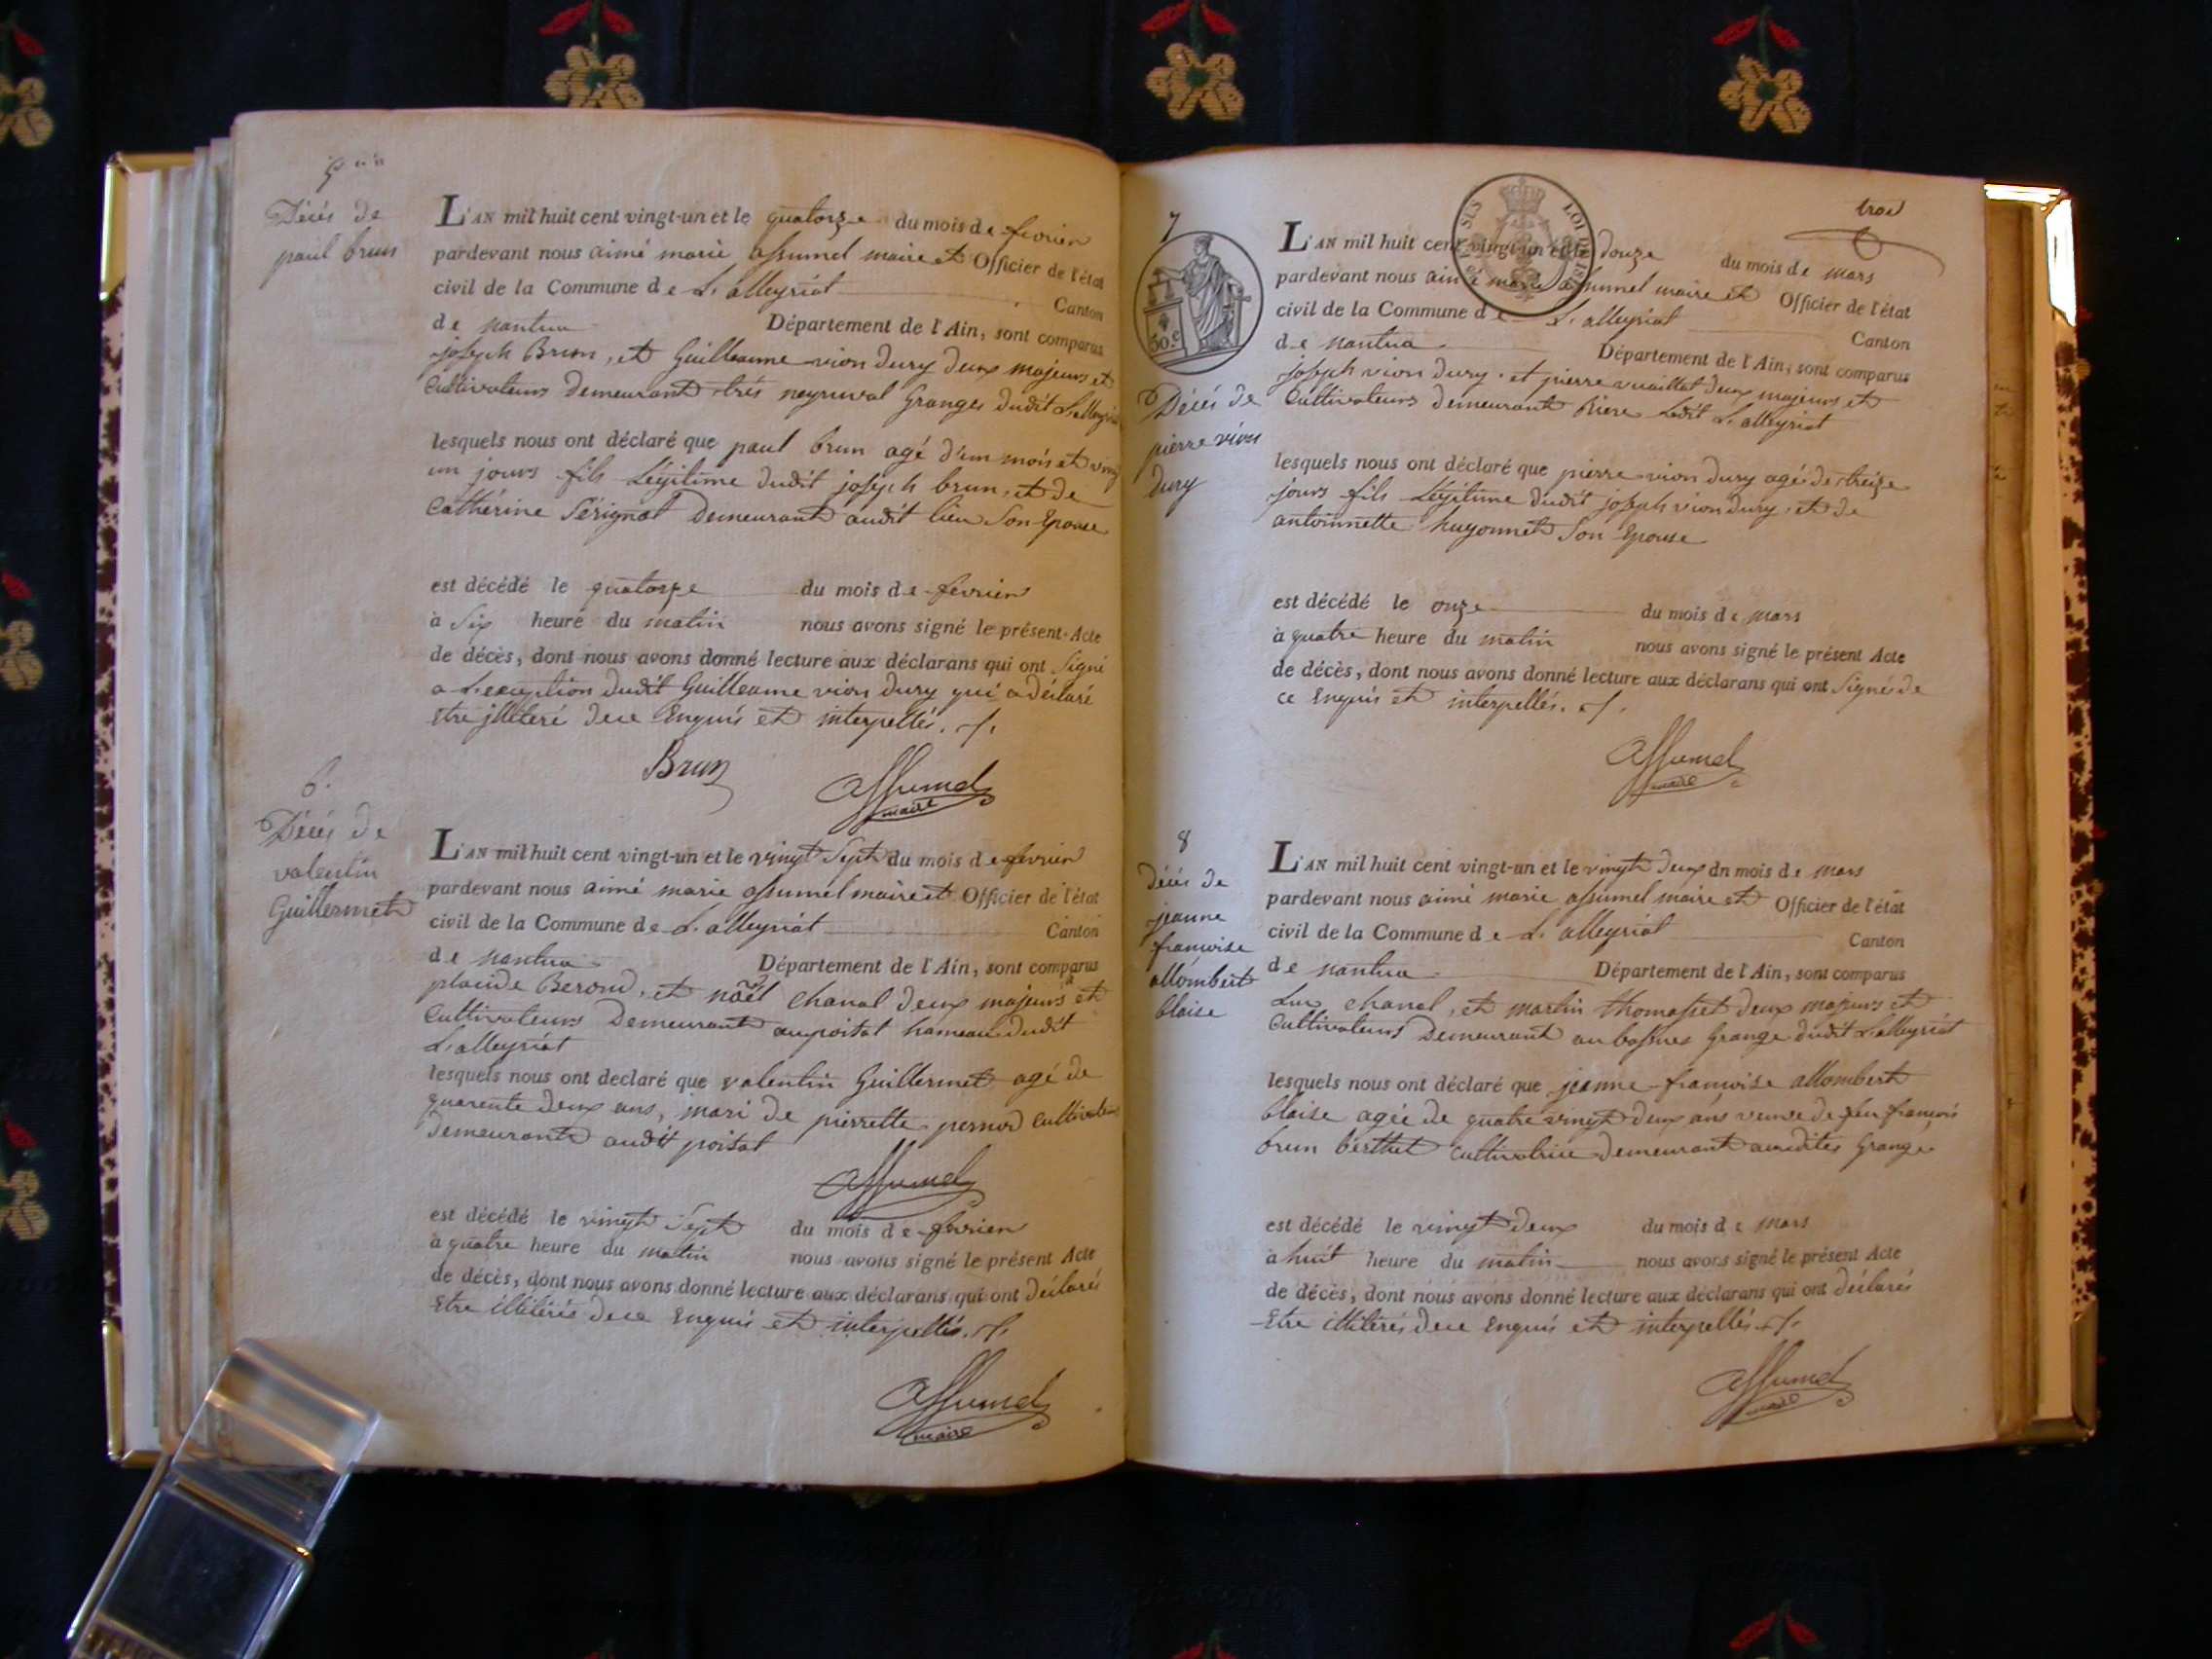 5
Décès de
paul brun
L'AN mil huit cent vingt-un et le quatorze du mois de fevrier
pardevant nous aimé marie assumel maire et Officier de l'état
civil de la Commune de L'alleyriat Canton
de nantua Département de l'Ain, sont comparus
joseph Brun, et Guilleaume vion dury deux majeurs et
Cultivateurs demeurant très neyruval Granges dudit L'alleyriat
lesquels nous ont déclaré que paul brun agé d'un mois et vingt
un jours fils Légitime dudit joseph brun, et de
Cathérine Sérignat Demeurant audit lieu Son Epouse
est décédé le quatorze du mois de fevrier
à Six heure du matin nous avons signé le présent Acte
de décès, dont nous avons donné lecture aux déclarans qui ont Signé
a L'exception dudit Guilleaume vion dury qui a déclaré
Etre jlliteré de ce Enquis et interpellés.
Brun
assumel
maire
6.
Décès de
valentin
Guillermet
L'AN mil huit cent vingt-un et le vingt Sept du mois de fevrier
pardevant nous aimé marie assumel maire et Officier de l'état
civil de la Commune de L'alleyriat Canton
de nantua Département de l'Ain, sont comparus
placide Beroud, et noël chanal deux majeurs et
Cultivateurs Demeurant au poisat hameau dudit
L'alleyriat
lesquels nous ont declaré que valentin Guillermet agé de
quarente deux ans, mari de pierrette pernod Cultivateur
Demeurant audit poisat
assumel
est décédé le vingt Sept du mois de fevrier
à quatre heure du matin nous avons signé le présent Acte
de décès, dont nous avons donné lecture aux déclarans qui ont déclarés
Etre illitérés de ce Enquis et interpellés.
assumel
maire
trois
7
SUS LOI DE 181
50.c
Décès de
pierre vion
dury
L'AN mil huit cent vingt-un et le douze du mois de mars
pardevant nous aimé marie assumel maire et Officier de l'état
civil de la Commune de L'alleyriat Canton
de nantua Département de l'Ain, sont comparus
joseph vion dury et pierre vuaillat deux majeurs et
Cultivateurs demeurant Riere Ledit L'alleyriat
lesquels nous ont déclaré que pierre vion dury agé de treize
jours fils Légitime dudit joseph vion dury, et de
antoinnette hugonnet Son Epouse
est décédé le onze du mois de mars
à quatre heure du matin nous avons signé le présent Acte
de décès, dont nous avons donné lecture aux déclarans qui ont Signés de
ce Enquis et interpellés.
assumel
maire
8
décès de
jeanne
francoise
allombert
blaise
L'AN mil huit cent vingt-un et le vingt deux dn mois de mars
pardevant nous aimé marie assumel maire et Officier de l'état
civil de la Commune de L'alleyriat Canton
de nantua Département de l'Ain, sont comparus
Luc chanal, et martin thomasset deux majeurs et
Cultivateurs Demeurant au Grange dudit L'alleyriat
lesquels nous ont déclaré que jeanne francoise allombert
blaise agée de quatre vingt deux ans veuve de feu francois
brun berthet Cultivatrice demeurant auxdites Grange
est décédé le vingt deux du mois de mars
à huit heure du matin nous avons signé le présent Acte
de décès, dont nous avons donné lecture aux déclarans qui ont déclarés
Etre illitérés de ce Enquis et interpellés.
assumel
maire